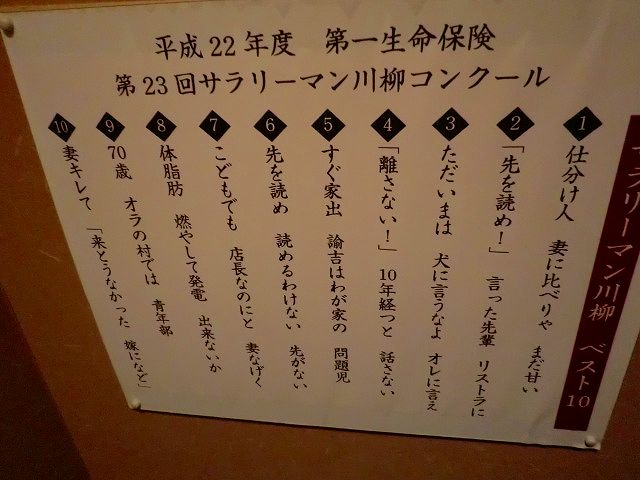 平成22年度　第一生命保険
第23回サラリーマン川柳コンクール
サラリーマン川柳　ベスト10
1 仕分け人　妻に比べりゃ　まだ甘い
2 「先を読め！」　言った先輩　リストラに
3 ただいまは　犬に言うなよ　オレに言え
4 「離さない！」　10年経つと　話さない
5 すぐ家出　諭吉はわが家の　問題児
6 先を読め　読めるわけない　先がない
7 こどもでも　店長なのにと　妻なげく
8 体脂肪　燃やして発電　出来ないか
9 70歳　オラの村では　青年部
10 妻キレて　「来とうなかった　嫁になど」